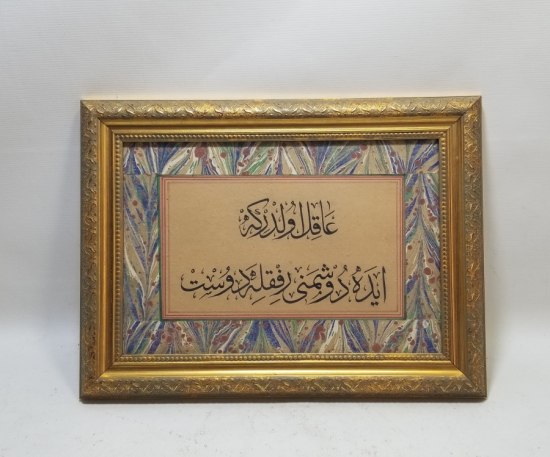 عاقل اولدركه
ايده دوشمنى رفقله دوست